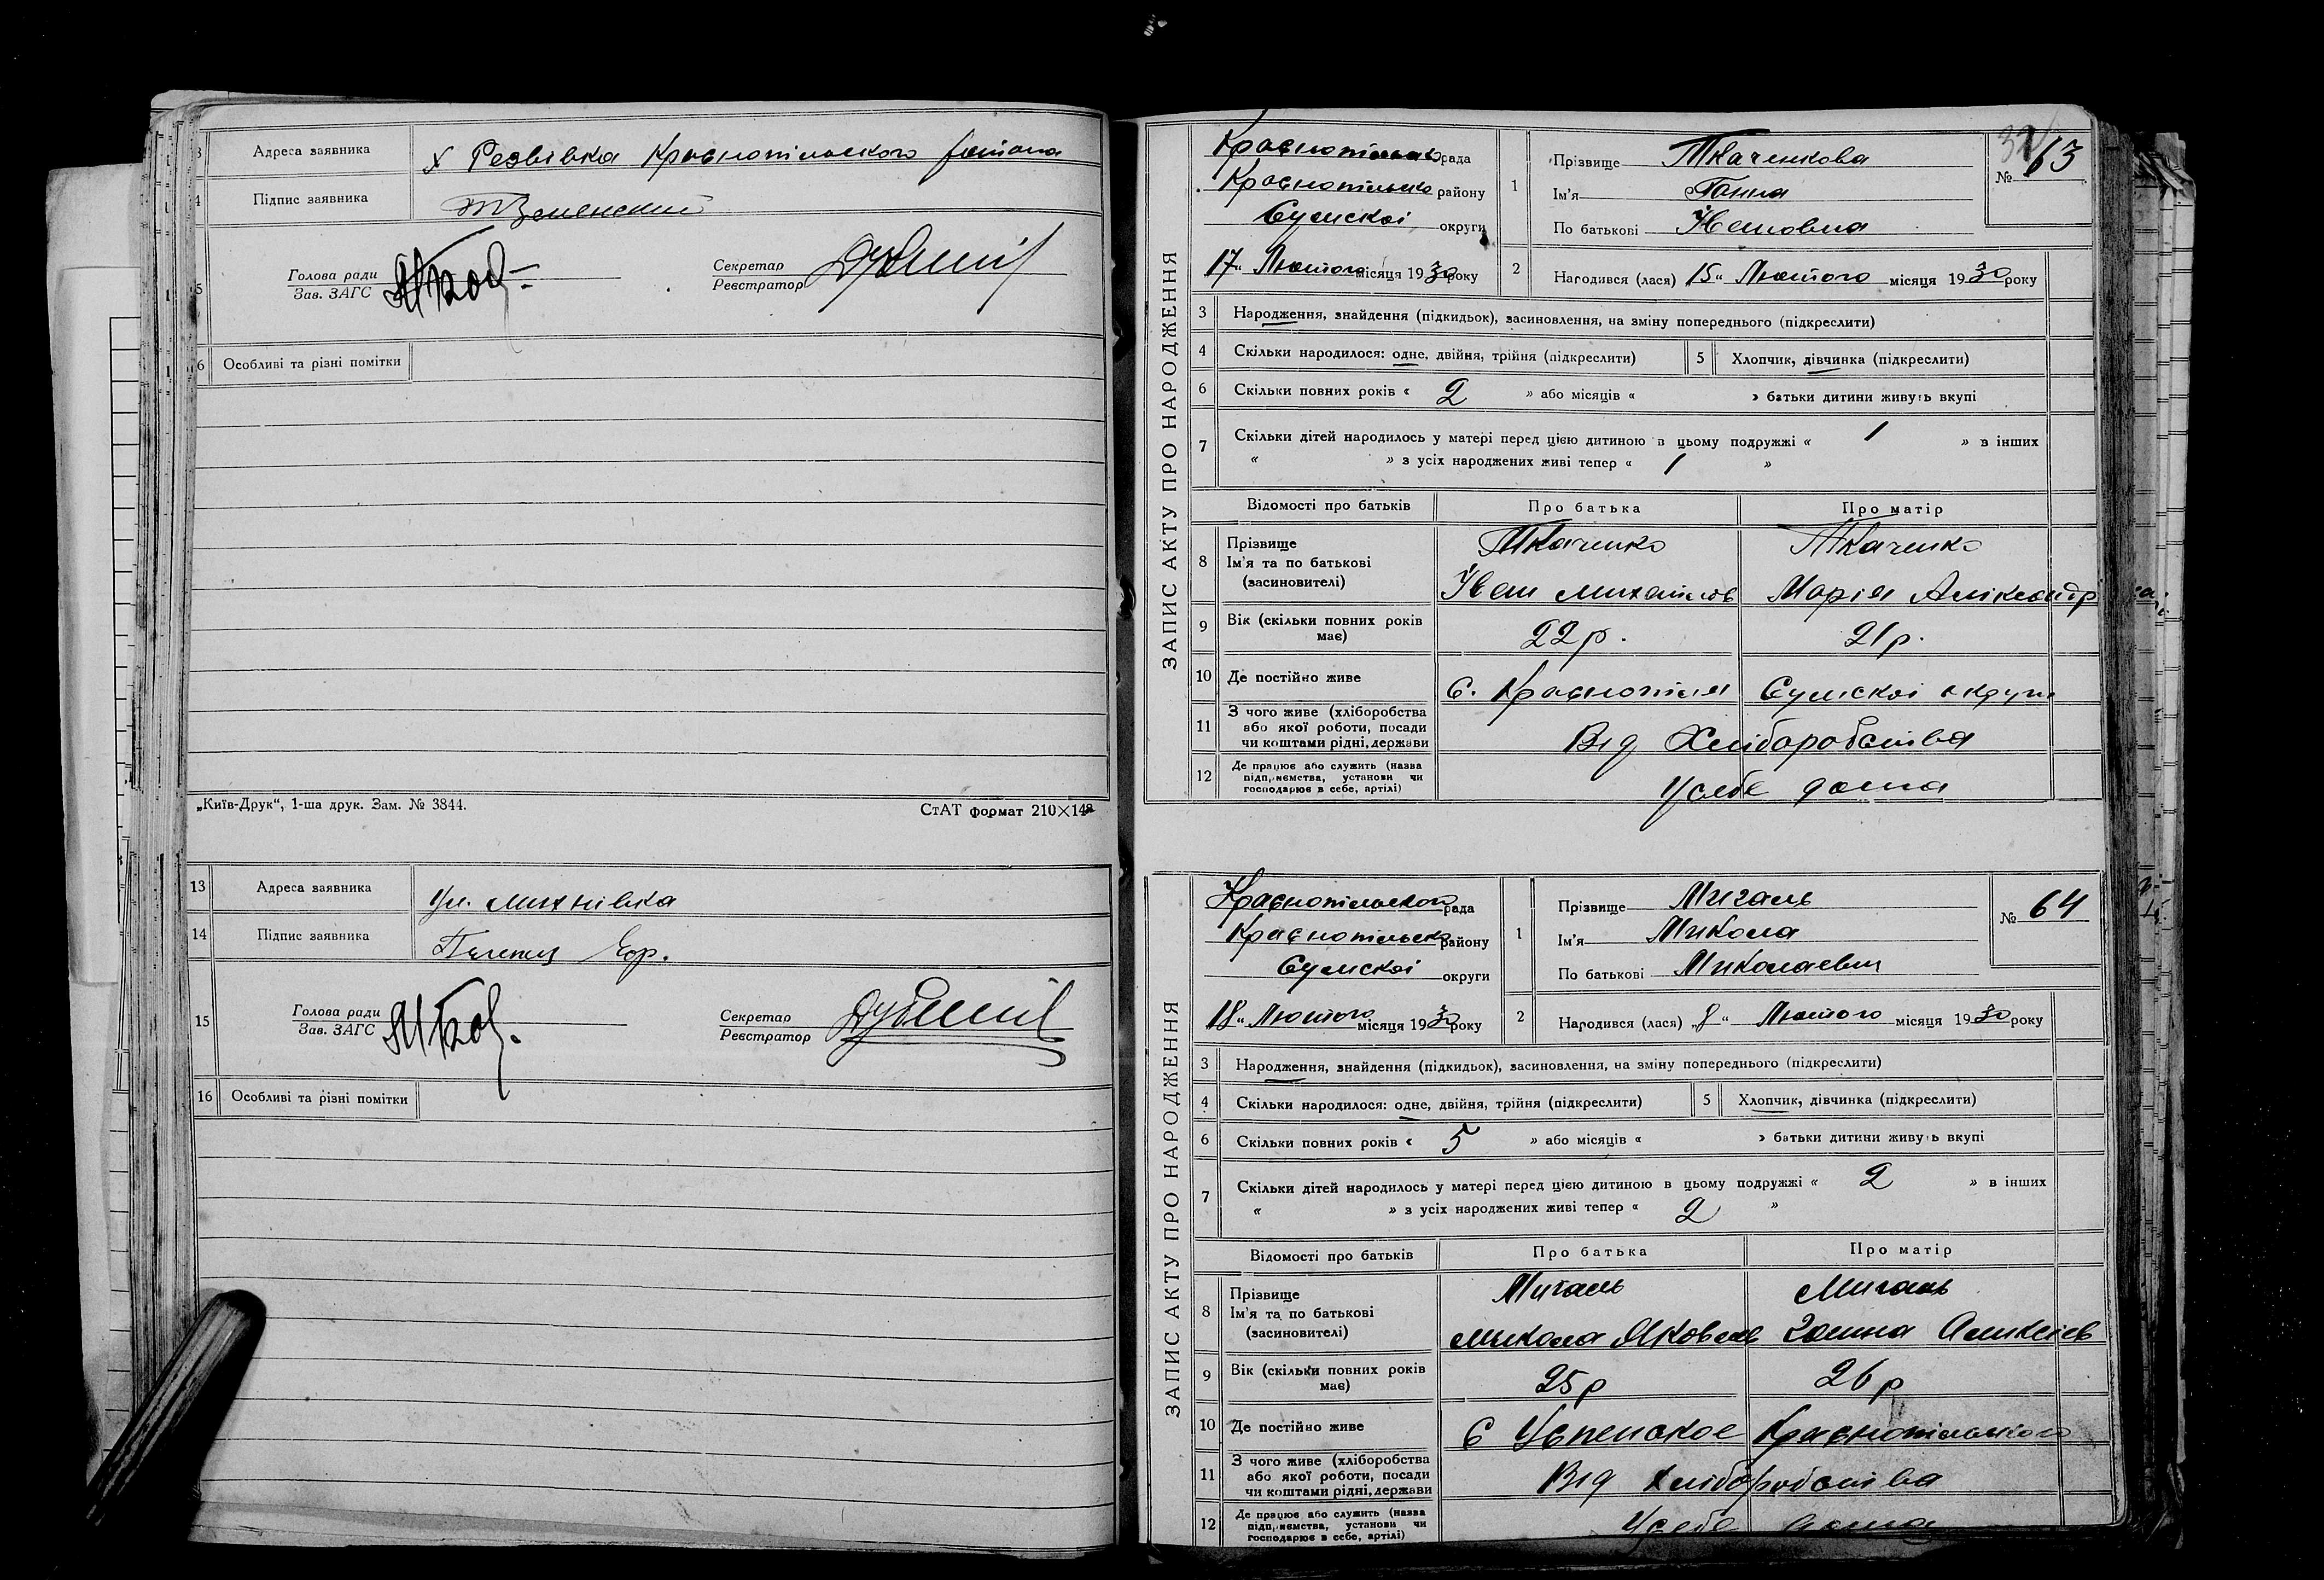 Адреса заявника х Резвівка Краснопільского району
Підпис заявника
Голова ради
Зав. ЗАГС
Секретар
Реєстратор
6 Особливі та різні помітки
„Київ-Друк“, 1-ша друк. Зам. № 3844.
СтАТ формат 210×148
13 Адреса заявника ул. Михнівка
14 Підпис заявника
15 Голова ради
Зав. ЗАГС
Секретар
Реєстратор
16 Особливі та різні помітки
32
ЗАПИС АКТУ ПРО НАРОДЖЕННЯ
Краснопільсько рада
Краснопільсько району
Сумскоі округи
17 „ Лютого місяця 1930 року
1 Прізвище Ткаченкова
Ім'я Ганна
По батькові Івановна
№ 63
2 Народився (лася) 15 “ Лютого місяця 1930 року
3 Народження, знайдення (підкидьок), засиновлення, на зміну попереднього (підкреслити)
4 Скільки народилося: одне, двійня, трійня (підкреслити) 5 Хлопчик, дівчинка (підкреслити)
6 Скільки повних років « 2 » або місяців « » батьки дитини живуть вкупі
7 Скільки дітей народилось у матері перед цією дитиною в цьому подружжі « 1 » в інших
« » з усіх народжених живі тепер « 1 »
Відомості про батьків Про батька Про матір
8 Прізвище Ткаченко Ткаченко
Ім'я та по батькові
(засиновителі) Іван Михайлов Марія Аліксандр
9 Вік (скільки повних років має) 22 р. 21 р.
10 Де постійно живе С. Краснопілля Сумскоі округи
11 З чого живе (хліборобства
або якої роботи, посади
чи коштами рідні, держави Від Хліборобства
12 Де працює або служить (назва
підприємства, установи чи
господарює в себе, артілі) Усебе дома
ЗАПИС АКТУ ПРО НАРОДЖЕННЯ
Краснопільского рада
Краснопільсько району
Сумскоі округи
18 „ Лютого місяця 1930 року
1 Прізвище Мигаль
Ім'я Микола
По батькові Миколаевич
№ 64
2 Народився (лася) „ 8 “ Лютого місяця 1930 року
3 Народження, знайдення (підкидьок), засиновлення, на зміну попереднього (підкреслити)
4 Скільки народилося: одне, двійня, трійня (підкреслити) 5 Хлопчик, дівчинка (підкреслити)
6 Скільки повних років « 5 » або місяців « » батьки дитини живуть вкупі
7 Скільки дітей народилось у матері перед цією дитиною в цьому подружжі « 2 » в інших
« » з усіх народжених живі тепер « 2 »
Відомості про батьків Про батька Про матір
8 Прізвище Мигаль Мигаль
Ім'я та по батькові
(засиновителі) Микола Яковлев Аликсіев
9 Вік (скільки повних років має) 25 р 26 р
10 Де постійно живе С Успенское Краснопільского
11 З чого живе (хліборобства
або якої роботи, посади
чи коштами рідні, держави Від Хліборобства
12 Де працює або служить (назва
підприємства, установи чи
господарює в себе, артілі) Усебе дома